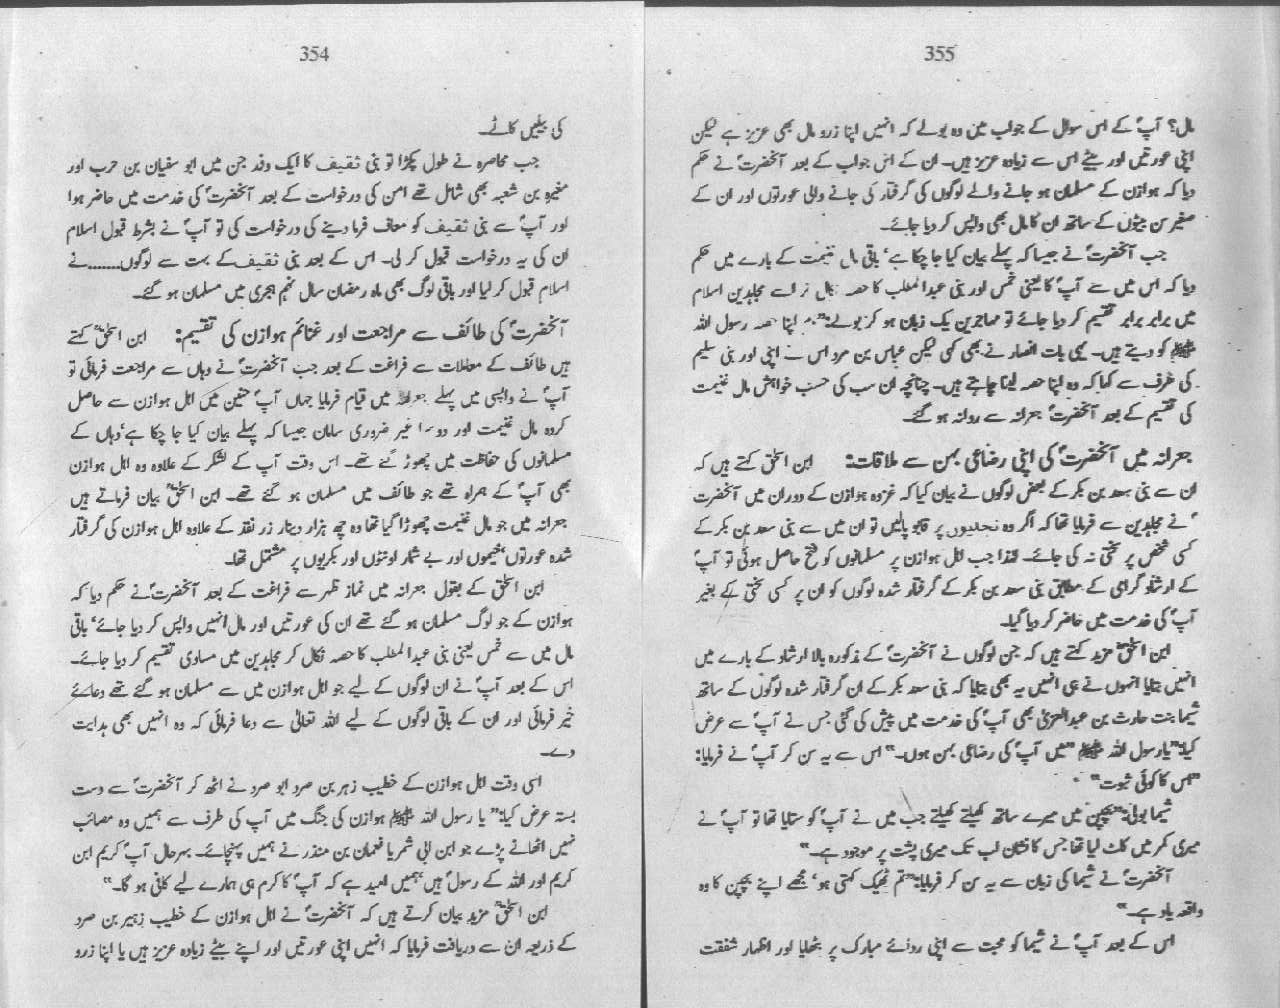 354
کی بیلیں کاٹے۔
جب محاصرہ نے طول پکڑا تو بنی ثقیف کا ایک وفد جن میں ابو سفیان بن حرب اور
مغیرہ بن شعبہ بھی شامل تھے امن کی درخواست کے بعد آنحضرتؐ کی خدمت میں حاضر ہوا
اور آپؐ سے بنی ثقیف کو معاف فرما دینے کی درخواست کی تو آپؐ نے بشرط قبول اسلام
ان کی یہ درخواست قبول کر لی۔ اس کے بعد بنی ثقیف کے بہت سے لوگوں.......نے
اسلام قبول کر لیا اور باقی لوگ بھی ماہ رمضان سال نہم ہجری میں مسلمان ہو گئے۔
آنحضرتؐ کی طائف سے مراجعت اور غنائم ہوازن کی تقسیم: ابن اسحٰقؒ کہتے
ہیں طائف کے معاملات سے فراغت کے بعد جب آنحضرتؐ نے وہاں سے مراجعت فرمائی تو
آپؐ نے واپسی میں پہلے جعرانہ میں قیام فرمایا جہاں آپؐ حنین میں اہل ہوازن سے حاصل
کردہ مال غنیمت اور دوسرا غیر ضروری سامان جیسا کہ پہلے بیان کیا جا چکا ہے‘ وہاں کے
مسلمانوں کی حفاظت میں چھوڑ گئے تھے۔ اس وقت آپ کے لشکر کے علاوہ وہ اہل ہوازن
بھی آپؐ کے ہمراہ تھے جو طائف میں مسلمان ہو گئے تھے۔ ابن اسحٰقؒ بیان فرماتے ہیں
جعرانہ میں جو مال غنیمت چھوڑا گیا تھا وہ چھ ہزار دینار زر نقد کے علاوہ اہل ہوازن کی گرفتار
شدہ عورتوں‘ خیموں اور بے شمار اونٹوں اور بکریوں پر مشتمل تھا۔
ابن اسحٰق کے بقول جعرانہ میں نماز ظہر سے فراغت کے بعد آنحضرتؐ نے حکم دیا کہ
ہوازن کے جو لوگ مسلمان ہو گئے تھے ان کی عورتیں اور مال انہیں واپس کر دیا جائے‘ باقی
مال میں سے خمس یعنی بنی عبدالمطلب کا حصہ نکال کر مجاہدین میں مساوی تقسیم کر دیا جائے۔
اس کے بعد آپؐ نے ان لوگوں کے لیے جو اہل ہوازن میں سے مسلمان ہو گئے تھے دعائے
خیر فرمائی اور ان کے باقی لوگوں کے لیے اللہ تعالیٰ سے دعا فرمائی کہ وہ انہیں بھی ہدایت
دے۔
اسی وقت اہل ہوازن کے خطیب زہیر بن صرد ابو صرد نے اٹھ کر آنحضرتؐ سے دست
بستہ عرض کیا:”یا رسول اللہ ﷺ ہوازن کی جنگ میں آپ کی طرف سے ہمیں وہ مصائب
نہیں اٹھانے پڑے جو ابن ابی شمر یا نعمان بن منذر نے ہمیں پہنچائے۔ بہرحال آپؐ کریم ابن
کریم اور اللہ کے رسولؐ ہیں‘ ہمیں امید ہے کہ آپؐ کا کرم ہی ہمارے لیے کافی ہو گا۔“
ابن اسحٰقؒ مزید بیان کرتے ہیں کہ آنحضرتؐ نے اہل ہوازن کے خطیب زہیر بن صرد
کے ذریعہ ان سے دریافت فرمایا کہ انہیں اپنی عورتیں اور اپنے بیٹے زیادہ عزیز ہیں یا اپنا زرو
355
مال؟ آپؐ کے اس سوال کے جواب میں وہ بولے کہ انہیں اپنا زرو مال بھی عزیز ہے لیکن
اپنی عورتیں اور بیٹے اس سے زیادہ عزیز ہیں۔ ان کے اس جواب کے بعد آنحضرتؐ نے حکم
دیا کہ ہوازن کے مسلمان ہو جانے والے لوگوں کی گرفتار کی جانے والی عورتوں اور ان کے
صغیر سن بیٹوں کے ساتھ ان کا مال بھی واپس کر دیا جائے۔
جب آنحضرتؐ نے جیسا کہ پہلے بیان کیا جا چکا ہے‘ باقی مال غنیمت کے بارے میں حکم
دیا کہ اس میں سے آپؐ کا یعنی خمس اور بنی عبدالمطلب کا حصہ نکال کر اسے مجاہدین اسلام
میں برابر برابر تقسیم کر دیا جائے تو مہاجرین یک زبان ہو کر بولے:”ہم اپنا حصہ رسول اللہ
ﷺ کو دیتے ہیں۔ یہی بات انصار نے بھی کہی لیکن عباس بن مرداس نے اپنی اور بنی سلیم
کی طرف سے کہا کہ وہ اپنا حصہ لینا چاہتے ہیں۔ چنانچہ ان سب کی حسب خواہش مال غنیمت
کی تقسیم کے بعد آنحضرتؐ جعرانہ سے روانہ ہو گئے۔
جعرانہ میں آنحضرتؐ کی اپنی رضاعی بہن سے ملاقات: ابن اسحٰق کہتے ہیں کہ
ان سے بنی سعد بن بکر کے بعض لوگوں نے بیان کیا کہ غزوہ ہوازن کے دوران میں آنحضرت
ؐ نے مجاہدین سے فرمایا تھا کہ اگر وہ نجدیوں پر قابو پالیں تو ان میں سے بنی سعد بن بکر کے
کسی شخص پر سختی نہ کی جائے۔ لہٰذا جب اہل ہوازن پر مسلمانوں کو فتح حاصل ہوئی تو آپؐ
کے ارشاد گرامی کے مطابق بنی سعد بن بکر کے گرفتار شدہ لوگوں کو ان پر کسی سختی کے بغیر
آپؐ کی خدمت میں حاضر کر دیا گیا۔
ابن اسحٰقؒ مزید کہتے ہیں کہ جن لوگوں نے آنحضرتؐ کے مذکورہ بالا ارشاد کے بارے میں
انہیں بتایا انہوں نے ہی انہیں یہ بھی بتایا کہ بنی سعد بکر کے ان گرفتار شدہ لوگوں کے ساتھ
شیما بنت حارث بن عبدالعزیٰ بھی آپؐ کی خدمت میں پیش کی گئی جس نے آپؐ سے عرض
کیا:”یارسول اللہ ﷺ ”میں آپؐ کی رضاعی بہن ہوں۔“ اس سے یہ سن کر آپؐ نے فرمایا:
”اس کا کوئی ثبوت“
شیما بولی:”بچپن میں میرے ساتھ کھیلتے کھیلتے جب میں نے آپؐ کو ستایا تھا تو آپؐ نے
میری کمر میں کاٹ لیا تھا جس کا نشان اب تک میری پشت پر موجود ہے۔“
آنحضرتؐ نے شیما کی زبان سے یہ سن کر فرمایا:”تم ٹھیک کہتی ہو‘ مجھے اپنے بچپن کا وہ
واقعہ یاد ہے۔“
اس کے بعد آپؐ نے شیما کو محبت سے اپنی ردائے مبارک پر بٹھایا اور اظہار شفقت